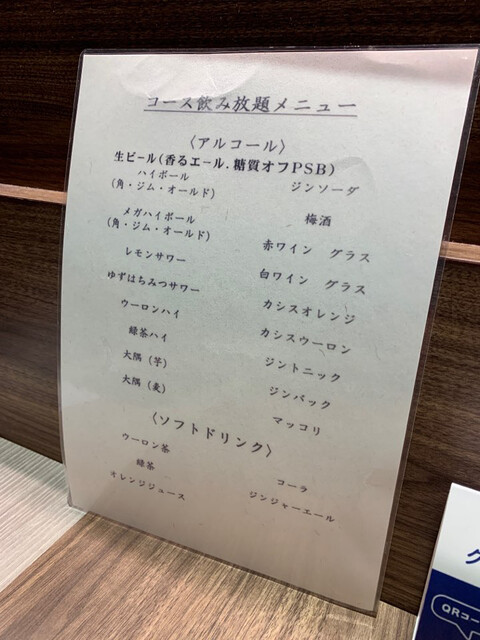 コース飲み放題メニュー
〈アルコール〉
生ビール(香るエール.糖質オフPSB)
ハイボール
(角・ジム・オールド)
メガハイボール
(角・ジム・オールド)
レモンサワー
ゆずはちみつサワー
ウーロンハイ
緑茶ハイ
大隅（芋）
大隅（麦）
ジンソーダ
梅酒
赤ワイン グラス
白ワイン グラス
カシスオレンジ
カシスウーロン
ジントニック
ジンバック
マッコリ
〈ソフトドリンク〉
ウーロン茶
緑茶
オレンジジュース
コーラ
ジンジャーエール
QRコー